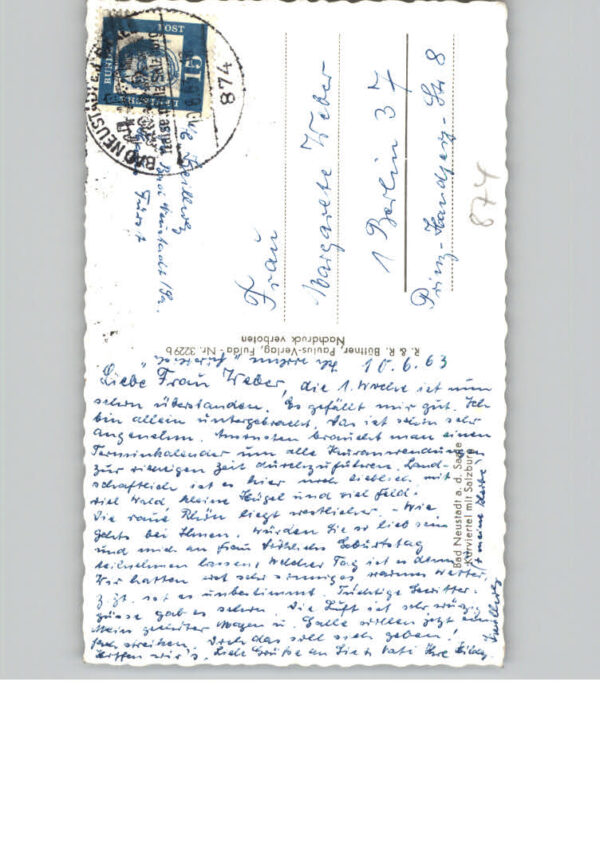 POST
15
BAD NEUSTADT
874
Bad Neustadt/Sa.
Frau
Margarete Weber
1 Berlin 37
Prinz-Handjery-Str 8
874
R. & R. Büttner, Paulus-Verlag, Fulda - Nr. 3229 b
Nachdruck verboten
Bad Neustadt a. d. Saale
Kurviertel mit Salzburg
10.6.63
Liebe Frau Weber, die 1. Woche ist nun
schon überstanden. Es gefällt mir gut. Ich
bin allein untergebracht. Das ist schon sehr
angenehm. Ansonsten braucht man einen
Terminkalender um alle Kuranwendungen
zur richtigen Zeit durchzuführen. Land-
schaftlich ist es hier noch lieblich mit
viel Wald kleine Hügel und viel Feld.
Die rauhe Rhön liegt westlicher. - Wie
gehts bei Ihnen. Würden Sie so lieb sein
und mich an Frau Geburtstag
teilnehmen lassen, welcher Tag ist es denn?
Wir hatten erst sehr sonniges warmes Wetter,
z.Zt. ist es unbestimmt. Tüchtige Gewitter-
güsse gab es schon. Die Luft ist sehr würzig
Mein Magen u. Galle wollen jetzt ein
streiken. Doch das soll sich geben!
Hoffen wir's. Liebe Grüße an Vati Ihre